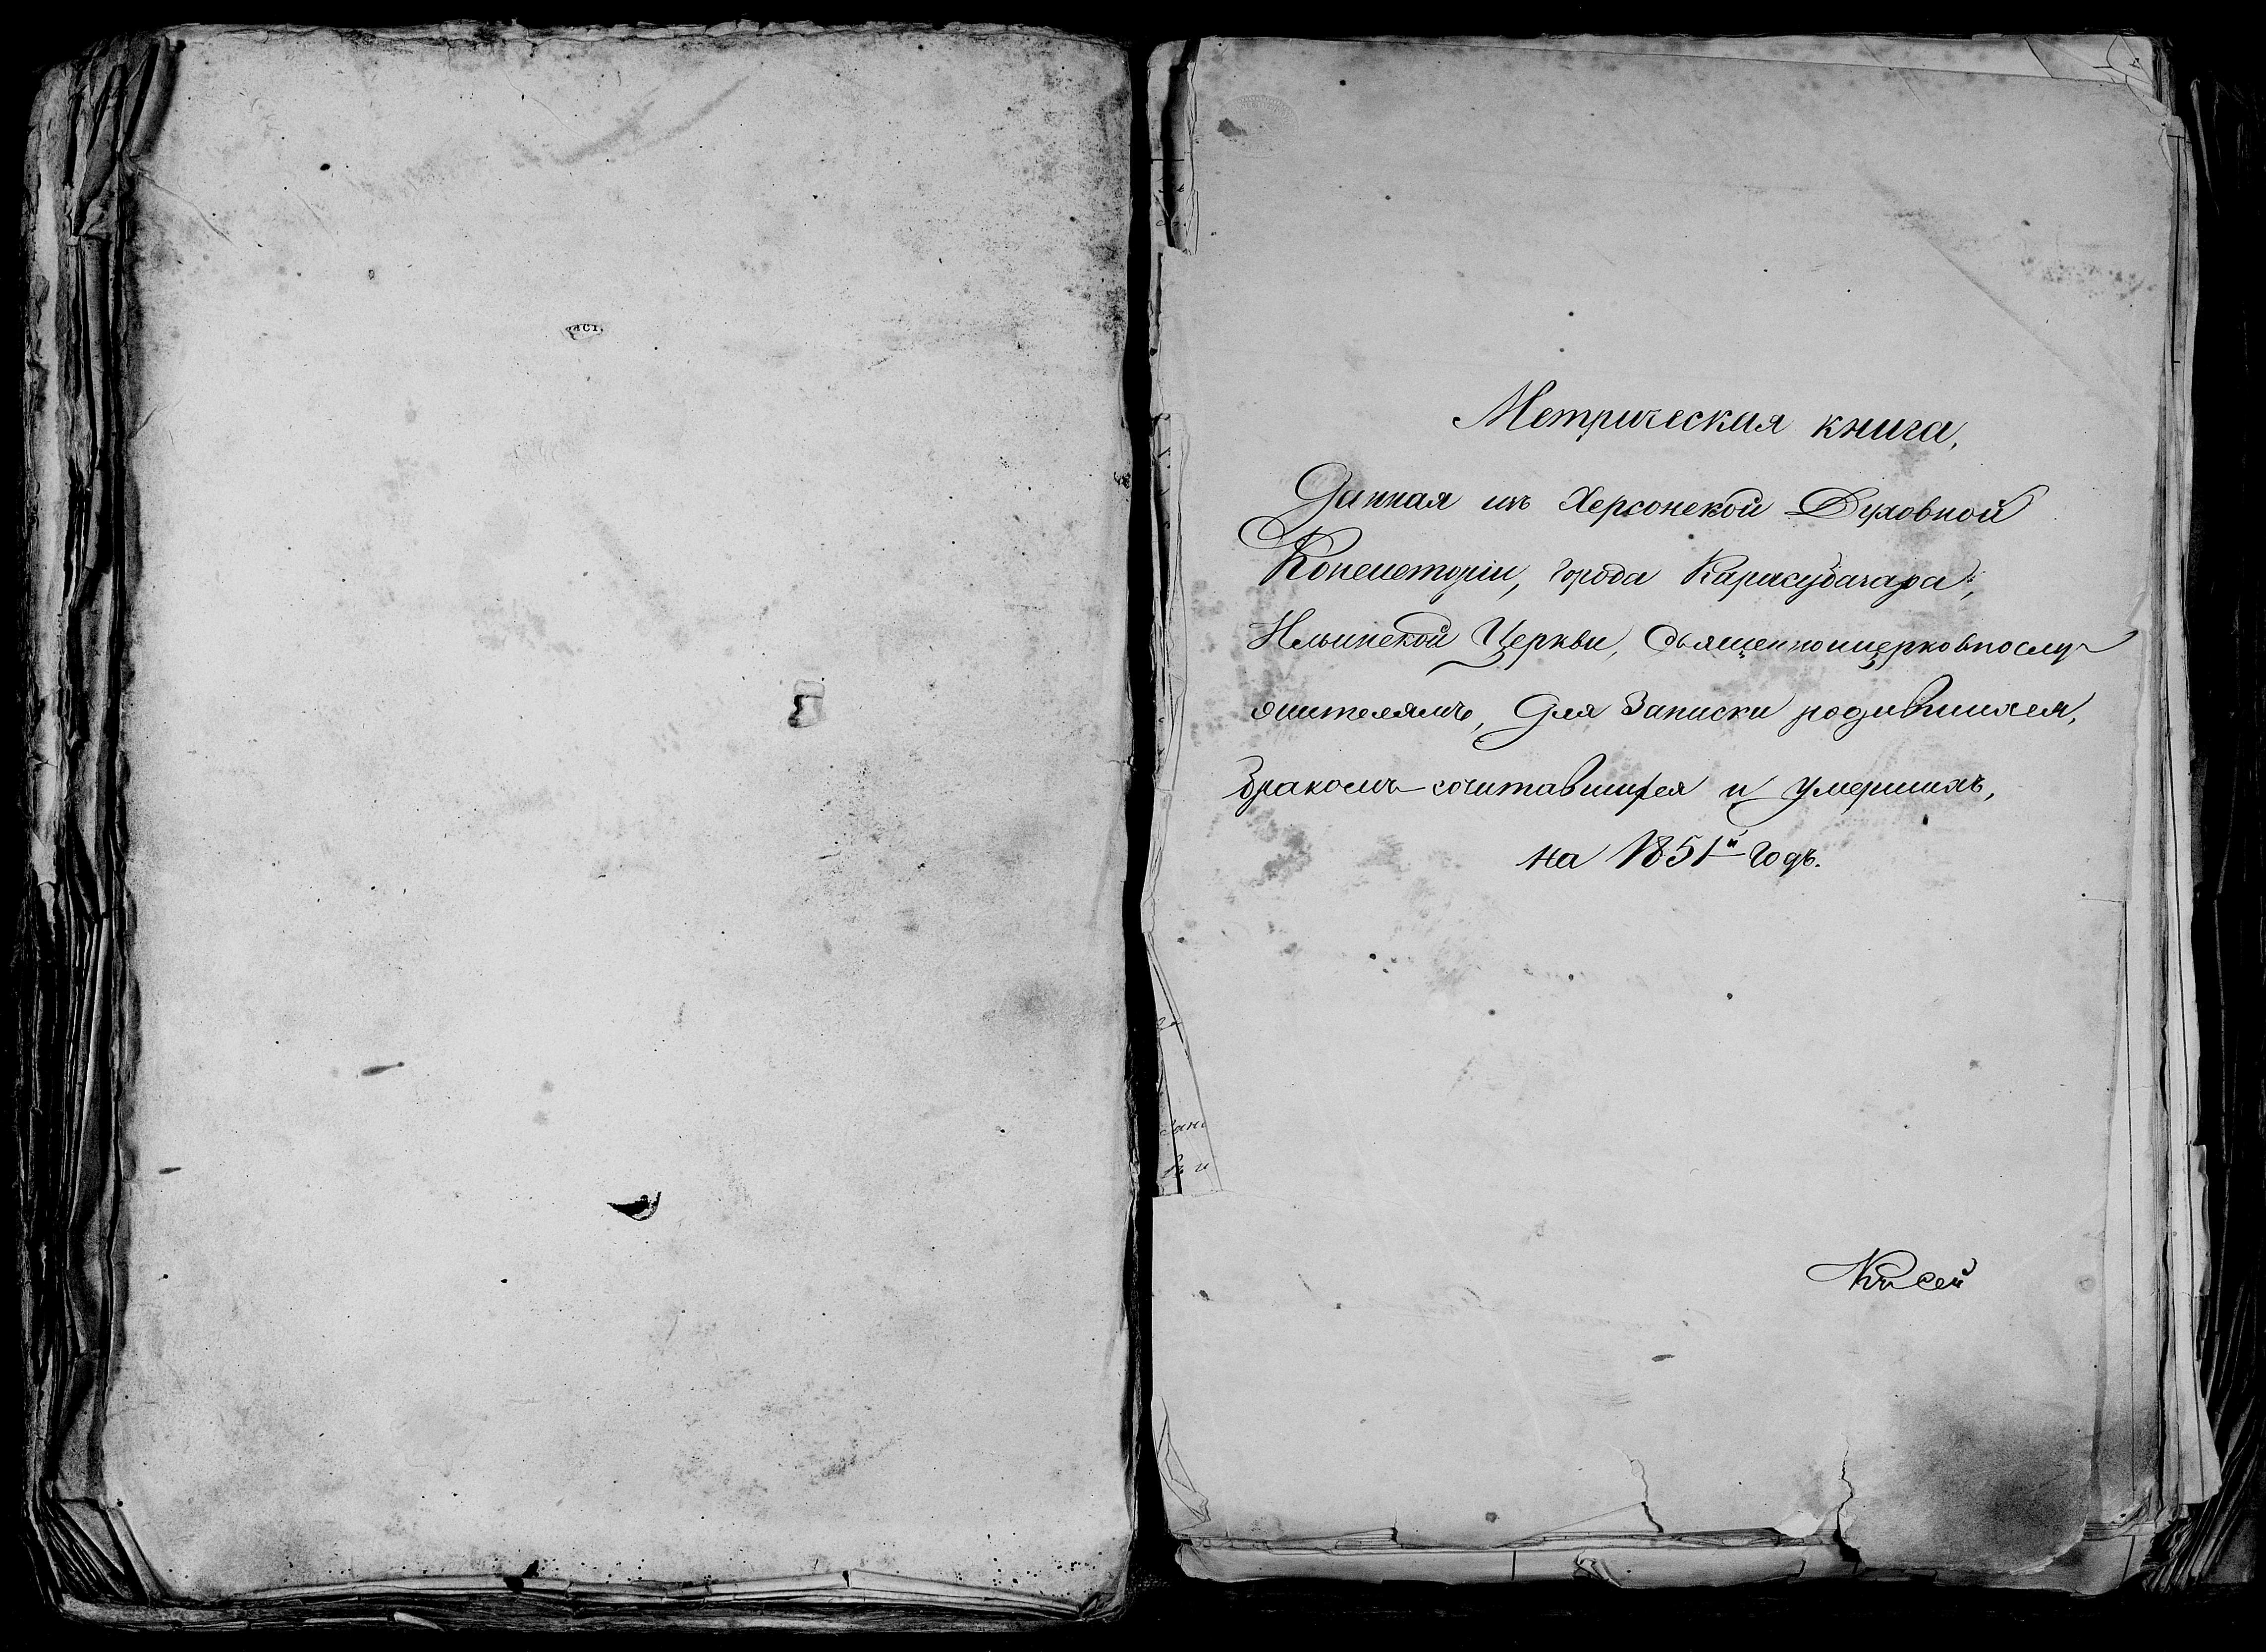 Метрическая книга,
Данная изъ Херсонской Духовной
Консисторіи, города Карасубазара,
Ильинской Церкви, Священноицерковнослу-
жителямъ, для Записки родившихся,
бракомъ сочитавшихся и умершихъ,
на 1851й годъ.